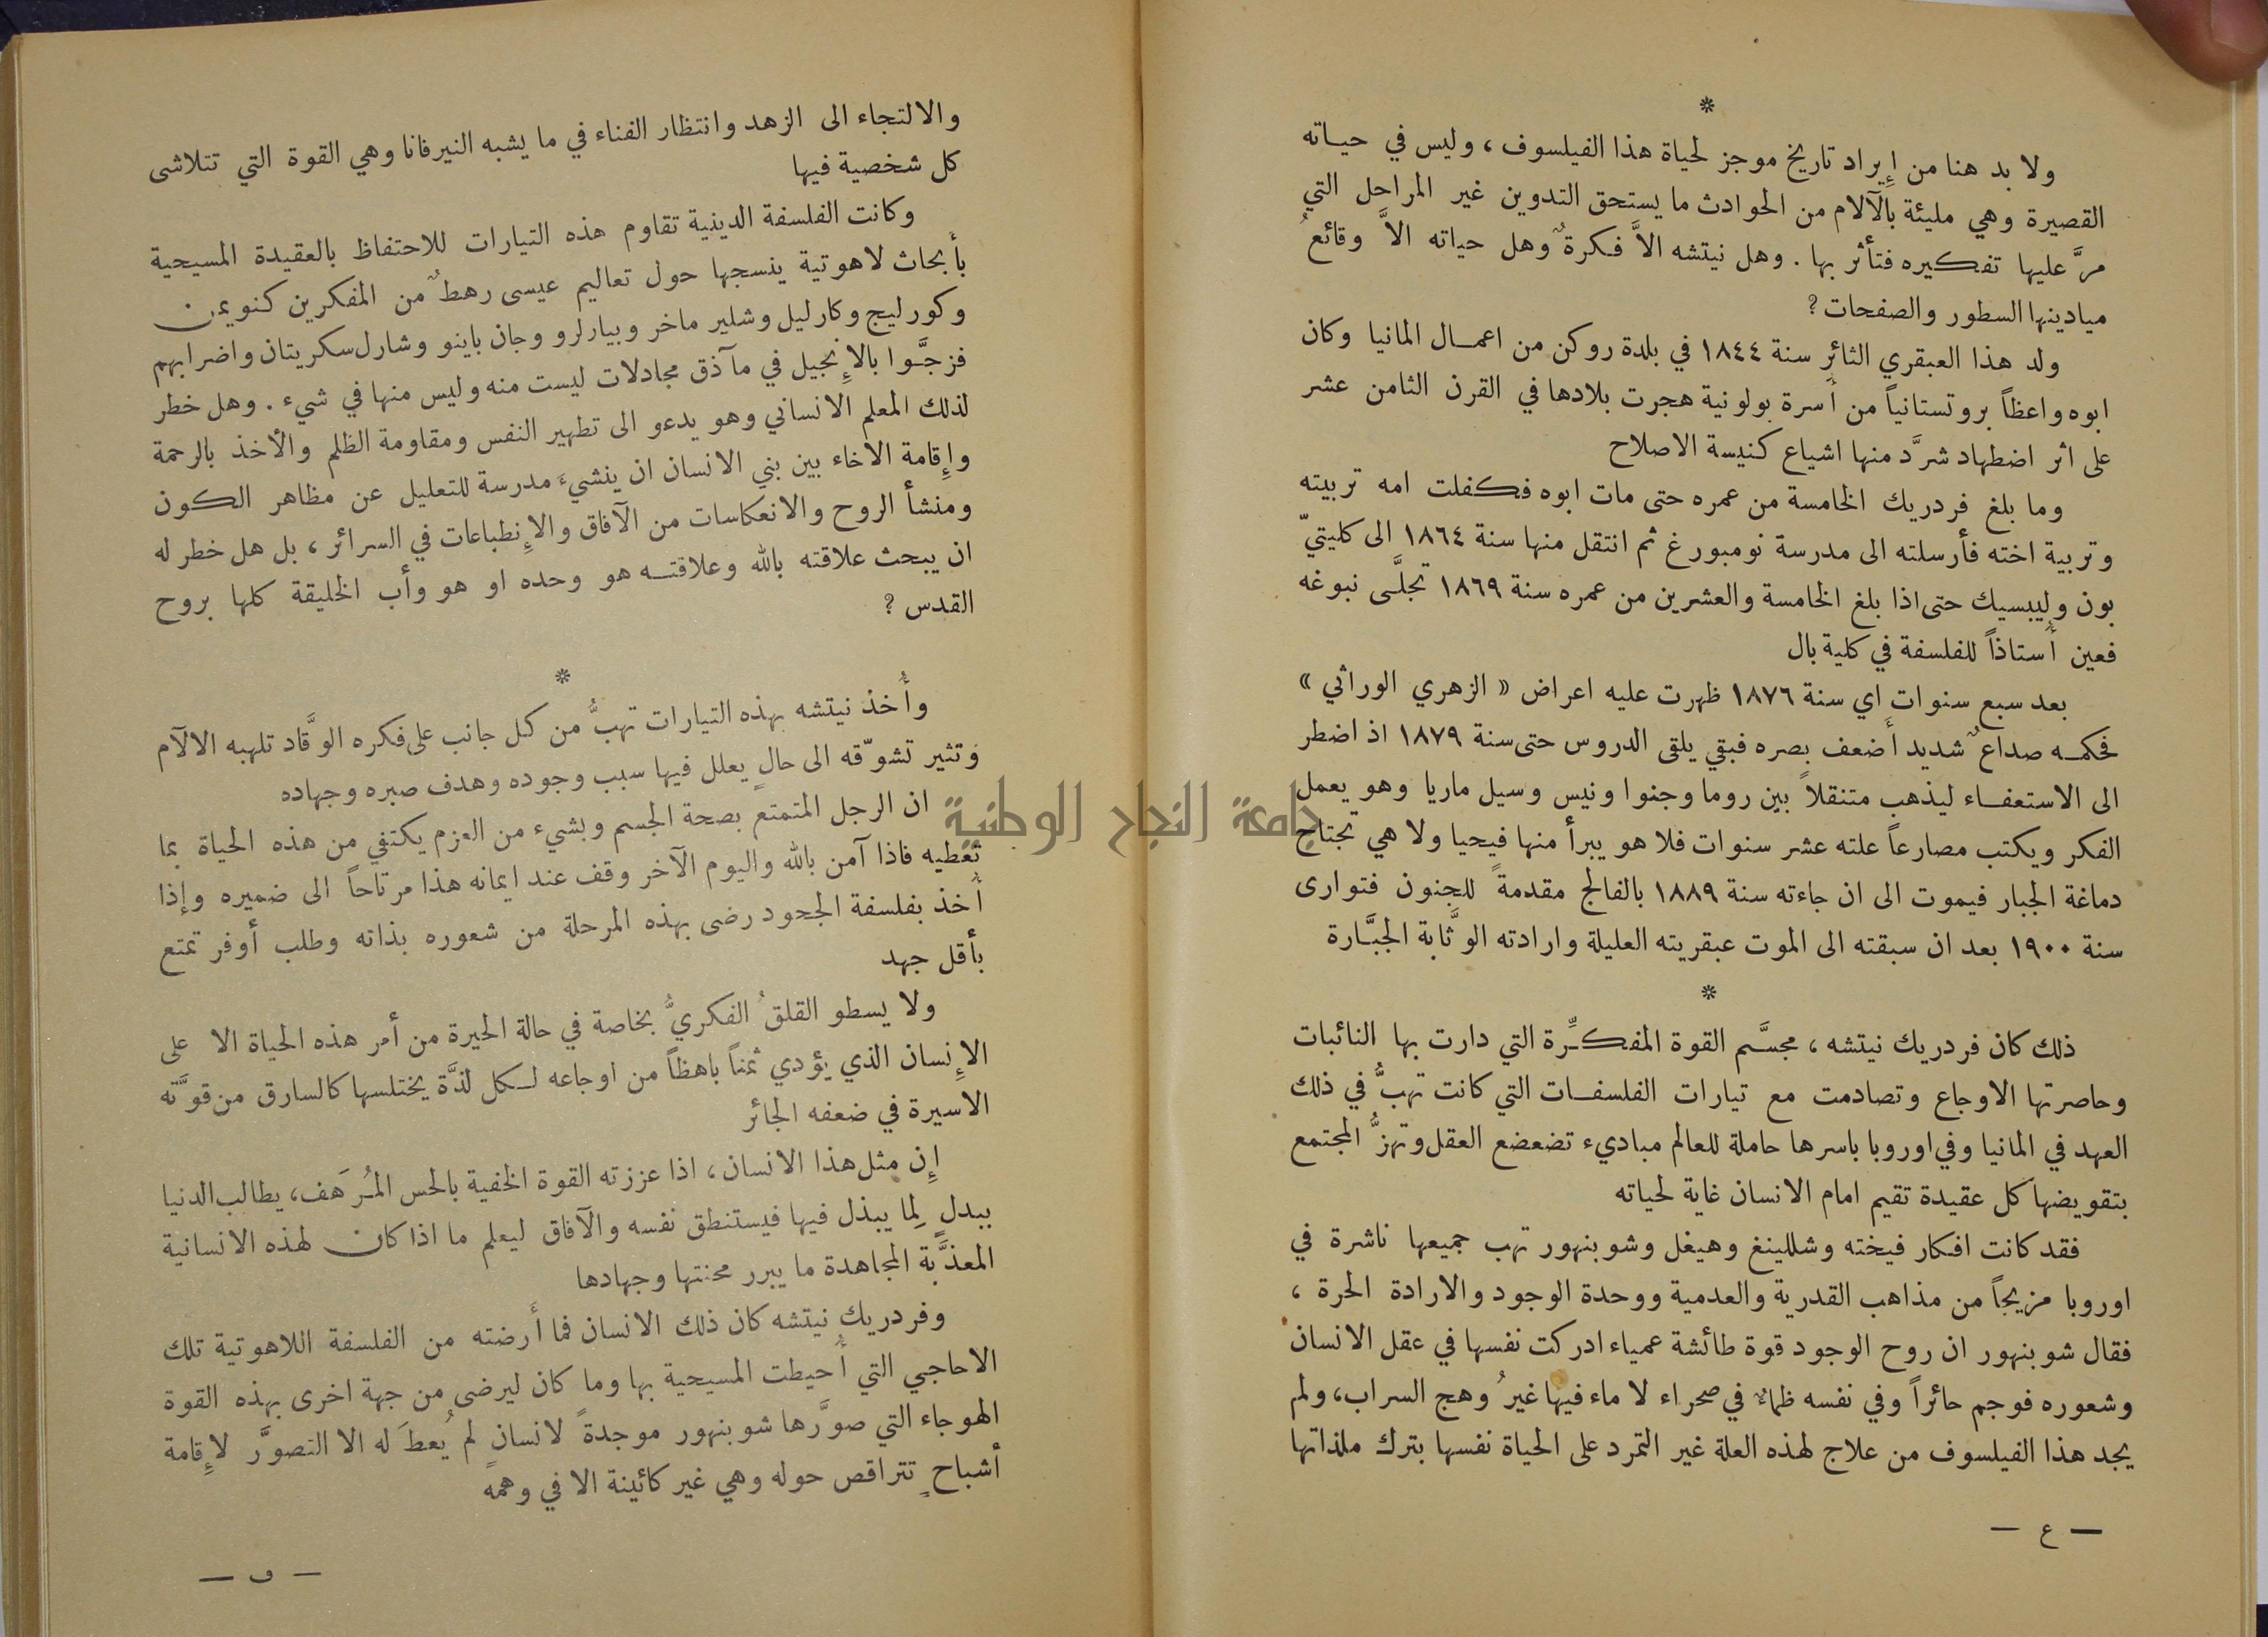 *
ولا بد هنا من إيراد تاريخ موجز لحياة هذا الفيلسوف ، وليس في حيـاته
القصيرة وهي مليئة بالآلام من الحوادث ما يستحق التدوين غير المراحل التي
مرَّ عليها تفكيره فتأثر بها . وهل نيتشه الاَّ فكرةٌ وهل حياته الاَّ وقائعُ
ميادينها السطور والصفحات ؟
ولد هذا العبقري الثائر سنة ١٨٤٤ في بلدة روكن من اعمـال المانيا وكان
ابوه واعظاً بروتستانياً من أسرة بولونية هجرت بلادها في القرن الثامن عشر
على اثر اضطهاد شرَّد منها اشياع كنيسة الاصلاح
وما بلغ فردريك الخامسة من عمره حتى مات ابوه فكفلت امه تربيته
وتربية اخته فأرسلته الى مدرسة نومبورغ ثم انتقل منها سنة ١٨٦٤ الى كليتيّ
بون وليبسيك حتى اذا بلغ الخامسة والعشرين من عمره سنة ١٨٦٩ تجلَّى نبوغه
فعين أستاذاً للفلسفة في كلية بال
بعد سبع سنوات اي سنة ١٨٧٦ ظهرت عليه اعراض « الزهري الوراثي »
فحكمـه صداعٌ شديد أضعف بصره فبقي يلقى الدروس حتى سنة ١٨٧٩ اذ اضطر
الى الاستعفـاء ليذهب متنقلاً بين روما وجنوا ونيس وسيل ماريا وهو يعمل
الفكر ويكتب مصارعاً علته عشر سنوات فلا هو يبرأ منها فيحيا ولا هي تجتاح
دماغة الجبار فيموت الى ان جاءته سنة ١٨٨٩ بالفالج مقدمةً للجنون فتوارى
سنة ١٩٠٠ بعد ان سبقته الى الموت عبقريته العليلة وارادته الوثَّابة الجبَّارة
*
ذلك كان فردريك نيتشه ، مجسَّم القوة المفكـِّرة التي دارت بها النائبات
وحاصرتها الاوجاع وتصادمت مع تيارات الفلسفـات التي كانت تهبُّ في ذلك
العهد في المانيا وفي اوروبا باسرها حاملة للعالم مباديء تضعضع العقل وتهزُّ المجتمع
بتقويضها كل عقيدة تقيم امام الانسان غاية لحياته
فقد كانت افكار فيخته وشللينغ وهيغل وشوبنهور تهب جميعها ناشرة في
اوروبا مزيجاً من مذاهب القدرية والعدمية ووحدة الوجود والارادة الحرة ،
فقال شوبنهور ان روح الوجود قوة طائشة عمياء ادركت نفسها في عقل الانسان
وشعوره فوجم حائراً وفي نفسه ظماءٌ في صحراء لا ماء فيها غيرُ وهج السراب، ولم
يجد هذا الفيلسوف من علاج لهذه العلة غير التمرد على الحياة نفسها بترك ملذاتها
— ع —
والالتجاء الى الزهد وانتظار الفناء في ما يشبه النيرفانا وهي القوة التي تتلاشى
كل شخصية فيها
وكانت الفلسفة الدينية تقاوم هذه التيارات للاحتفاظ بالعقيدة المسيحية
بأبحاث لاهوتية ينسجها حول تعاليم عيسى رهطٌ من المفكرين كنويمن
وكورليج وكارليل وشلير ماخر وبيارلرو وجان باينو وشارل سكريتان واضرابهم
فزجَّوا بالإنجيل في مآذق مجادلات ليست منه وليس منها في شيء . وهل خطر
لذلك المعلم الانساني وهو يدعو الى تطهير النفس ومقاومة الظلم والأخذ بالرحمة
وإقامة الاخاء بين بني الانسان ان ينشيءَ مدرسة للتعليل عن مظاهر الكون
ومنشأ الروح والانعكاسات من الآفاق والإنطباعات في السرائر ، بل هل خطر له
ان يبحث علاقته بالله وعلاقتـه هو وحده او هو وأب الخليقة كلها بروح
القدس ؟
*
وأُخذ نيتشه بهذه التيارات تهبُّ من كل جانب على فكره الوقَّاد تلهبه الالآم
وتثير تشوّقه الى حالٍ يعلل فيها سبب وجوده وهدف صبره وجهاده
ان الرجل المتمتع بصحة الجسم وبشيء من العزم يكتفي من هذه الحياة بما
تعطيه فاذا آمن بالله واليوم الآخر وقف عند ايمانه هذا مرتاحاً الى ضميره وإذا
أخذ بفلسفة الجحود رضى بهذه المرحلة من شعوره بذاته وطلب أوفر تمتع
بأقل جهد
ولا يسطو القلقُ الفكريُّ بخاصة في حالة الحيرة من أمر هذه الحياة الا على
الإنسان الذي يؤدي ثمناً باهظاً من اوجاعه لـكل لذَّة يختلسها كالسارق من قوَّته
الاسيرة في ضعفه الجائر
إن مثل هذا الانسان ، اذا عززته القوة الخفية بالحس المـُرهَف، يطالب الدنيا
ببدلٍ لِما يبذل فيها فيستنطق نفسه والآفاق ليعلم ما اذا كان لهذه الانسانية
المعذَّبة المجاهدة ما يبرر محنتها وجهادها
وفردريك نيتشه كان ذلك الانسان فما أرضته من الفلسفة اللاهوتية تلك
الاحاجي التي أحيطت المسيحية بها وما كان ليرضى من جهة اخرى بهذه القوة
الهوجاء التي صوَّرها شوبنهور موجدةً لانسانٍ لم يُعطَ له الا التصوَّر لإقامة
أشباحٍ تتراقص حوله وهي غير كائينة الا في وهمه
— ف —
جامعة النجاح الوطنية